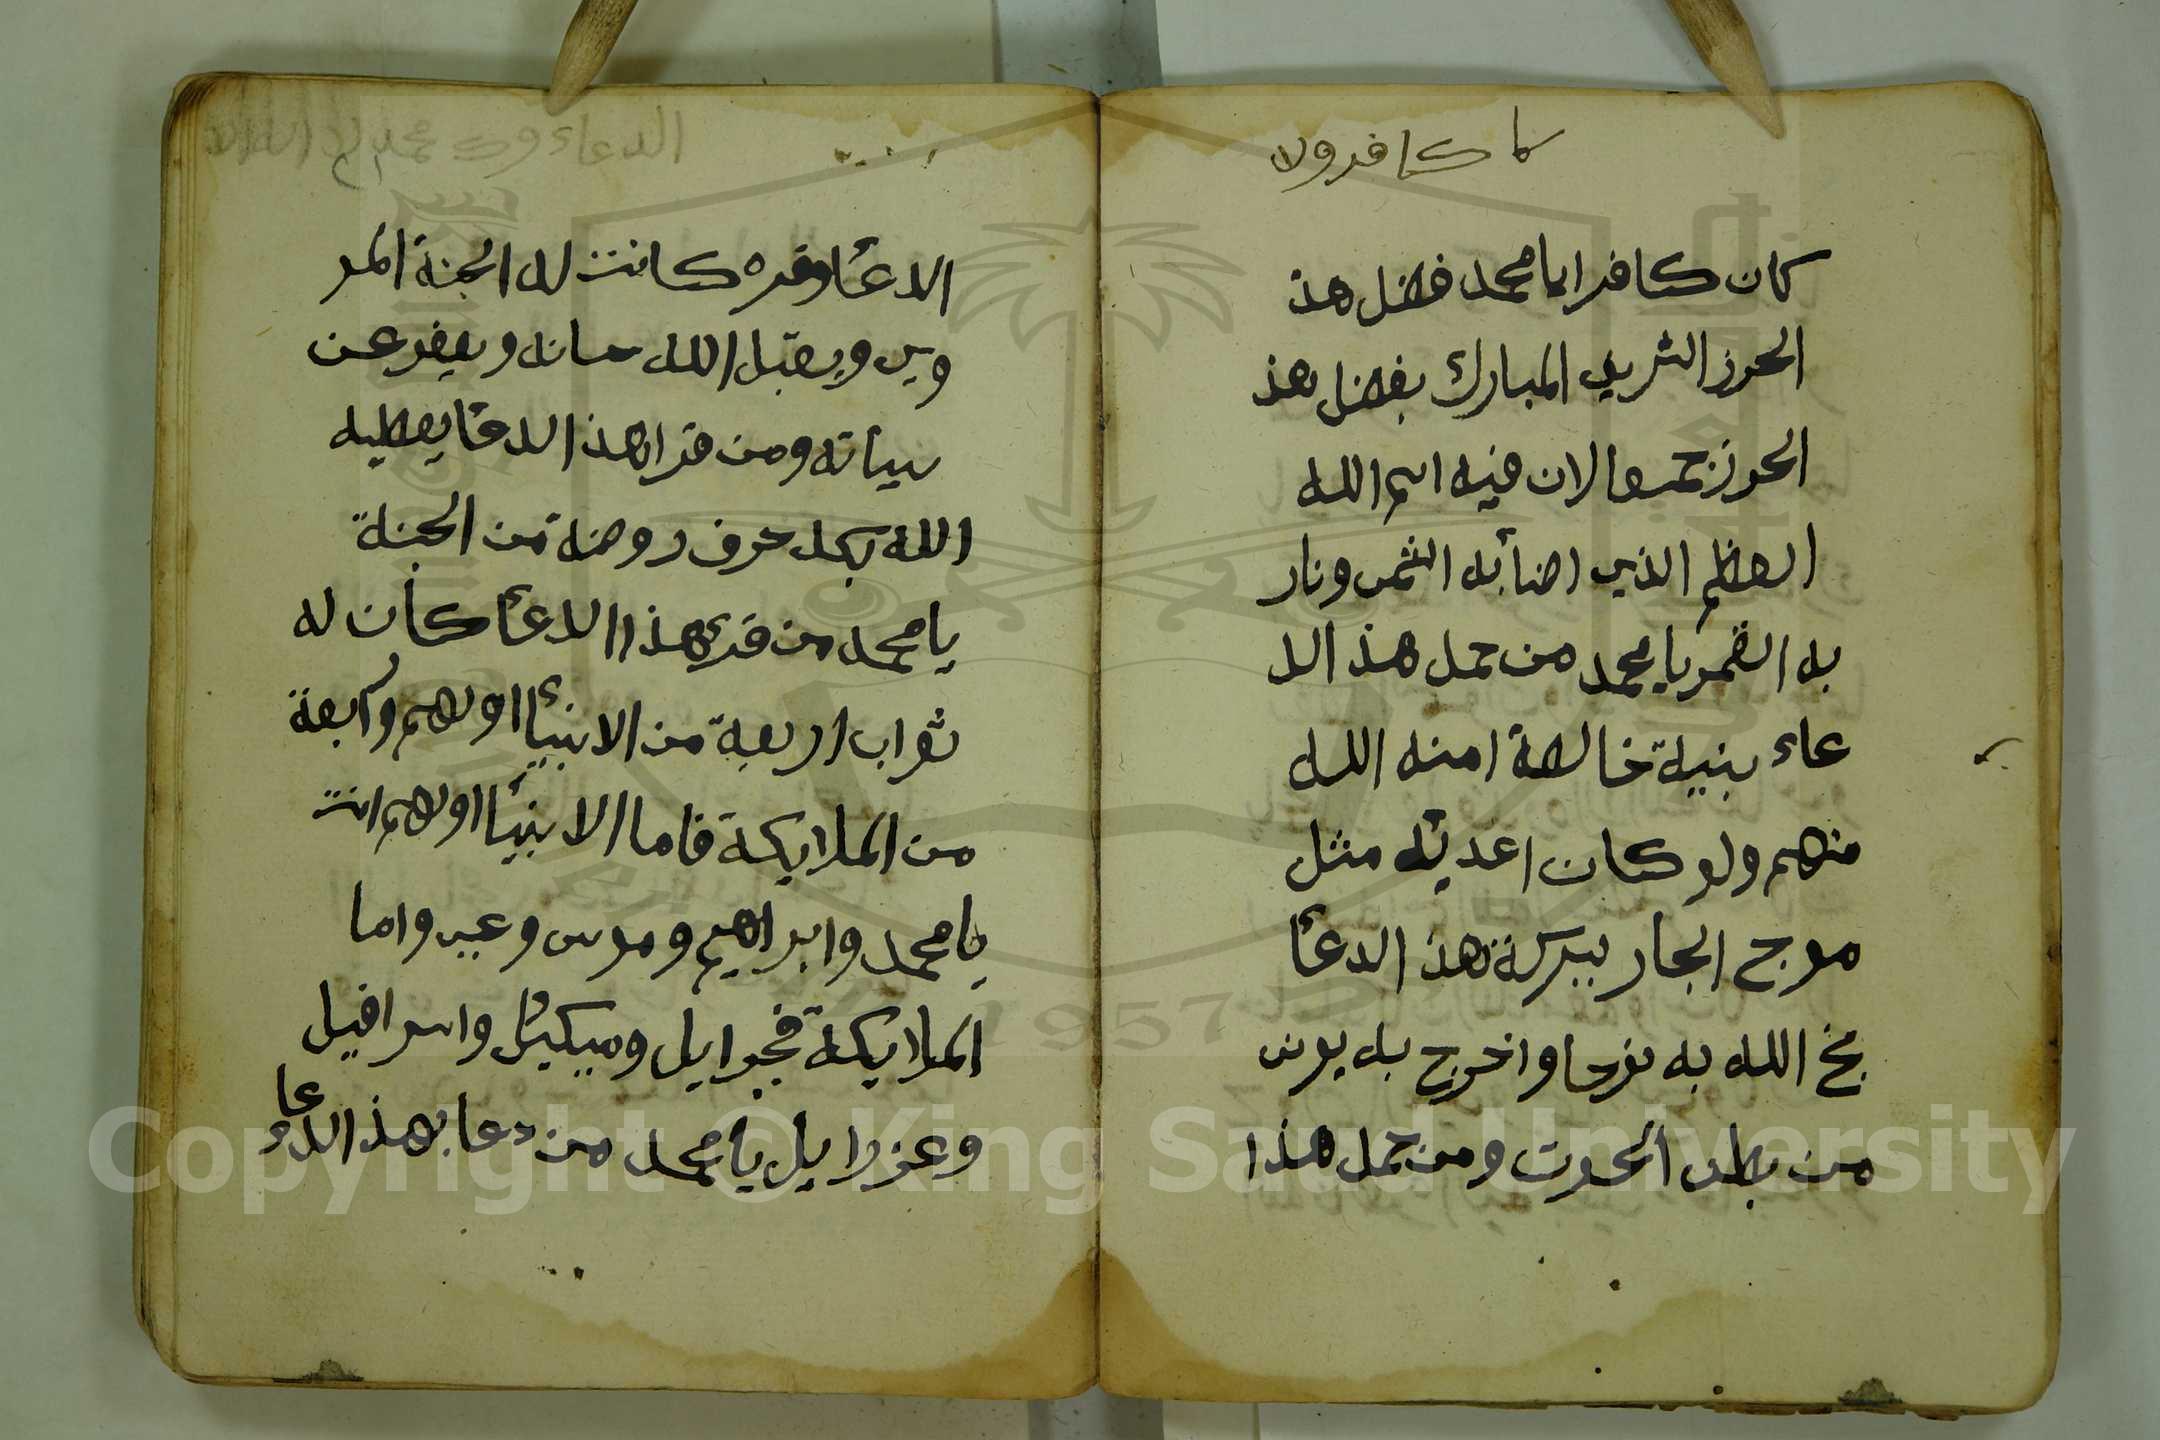 كا كافرولا
كان كافرا يا محمد فضل هذ
الحرز الشريف المبارك بفضل هذ
الحرز جميعا لان فيه اسم الله
العظيم الذي اضأ به الشمس ونار
به القمر يا محمد من حمل هذ الد
عاء بنية خالصة امنه الله
منهم ولو كان اعديه مثل
موج البحار ببركة هذ الدعأ
نجا الله به نوحا واخرج به يونس
من بطن الحوت ومن حمل هذا
الدعاء وك محمد لا اله الا
الدعأ وقره كانت له الجنة المر
ويس ويقبل الله حسانه ويغفر عن
سيأته ومن قرا هذ الدعأ يعطيه
الله بكل حرف روضة من الجنة
يا محمد من قرئ هذا الدعأ كان له
ثواب اربعة من الانبيأ اولهم وأربعة
من الملايكة فاما الانبيأ اولهم انت
يا محمد وابراهيم وموسى وعيسى واما
الملايكة فجبرايل وميكيل واسرافيل
وعزرايل يا محمد من دعا بهذ الدعاء
Copyright © King Saud University
1957